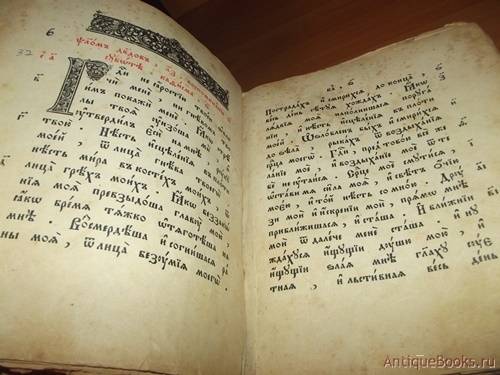 6
32
Ѱалом дв҃дов
ди не ꙗрости
чи мене, ни гнѣво
покажи мѝ
лы твоѧ оунзоша
твою̀
твердилъ есѝ на мнѣ̀, рꙋ
Нѣсть исцѣленїѧ въ
мое́й, ѿ лица̀ гнѣва твоегѡ̀
нѣсть ми́ра въ косте́хъ мои́хъ
лица̀ грѣ́хъ мои́хъ. Ꙗкѡ безза
нїѧ моѧ̀ превзыдо́ша главꙋ̀ мою̀
ꙗкѡ бре́мѧ тѧ́жко ѿтѧготѣ́ша на
мнѣ̀. Восмердѣ́ша и согни́шасѧ ра
ны моѧ̀, ѿ лица̀ безꙋмїѧ моегѡ̀
Пострада́хъ, и смири́хсѧ до конца̀,
весь де́нь сѣтꙋѧ хожда́хъ. Ꙗкѡ
моѧ̀ напо́лнишасѧ порꙋга
и нѣсть исцѣле́нїѧ въ пло́ти
мое́й. Ѡзло́бленъ бы́хъ, и смири́хсѧ
до ѕѣла̀, рыка́хъ ѿ воздыха́нїѧ
срⷣца моегѡ̀. Гдⷭ҇и, пред тобо́ю всѐ же
ла́нїе моѐ, и воздыха́нїе моѐ ѿ те
бѐ не оутаи́сѧ. Срⷣце моѐ смꙋти́сѧ,
ѡста́ви мѧ̀ си́ла моѧ̀, и свѣ́тъ ѻ҆́чїю
моє́ю, и то́й нѣсть со мно́ю. Дрꙋ
зи мой и и́скренїи мой, прѧ́мѡ мнѣ̀
прибли́жишасѧ, и ста́ша. И бли́жнїи
мой ѿдале́че менѐ ста́ша. и нꙋ
жда́хꙋсѧ и́щꙋщїи дꙋшѝ мое́й, и
и́щꙋщїи ѕла́ѧ мнѣ̀, глахꙋ сꙋе
тнаѧ, и льсти́внаѧ ве́сь де́нь
AntiqueBooks.ru